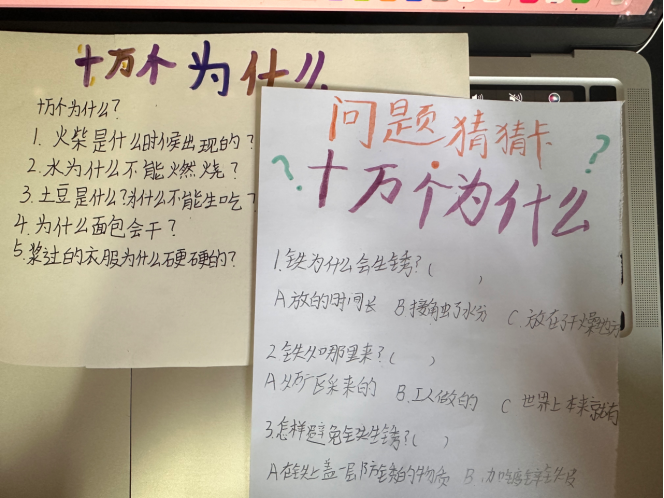 十万个为什么
十万个为什么?
1. 火柴是什么时候出现的?
2. 水为什么不能燃烧?
3. 土豆是什么?为什么不能生吃?
4. 为什么面包会干?
5. 浆过的衣服为什么硬硬的?
问题猜猜卡
? 十万个为什么 ?
1. 铁为什么会生锈?( )
A 放的时间长 B 接触了水分 C. 放在了干燥地方
2. 铁从哪里来?( )
A 从矿石采来的 B. 工人做的 C 世界上本来就有
3. 怎样避免铁生锈?( )
A 在铁上盖一层防锈的物质 B. 加镀锌铁皮